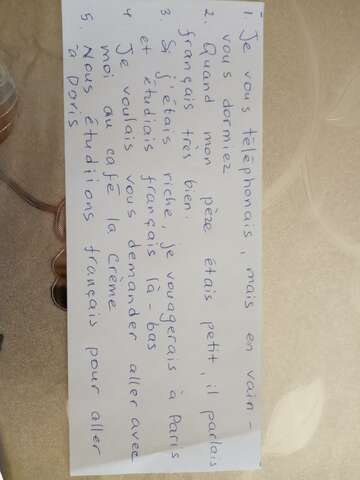 1. Je vous téléphonais, mais en vain -
vous dormiez
2. Quand mon père étais petit, il parlais
français très bien.
3. Si j'étais riche, je vouagerais à Paris
et étudiais français là-bas
4 Je voulais vous demander aller avec
moi au café la crème
5. Nous étudiions français pour aller
à Paris